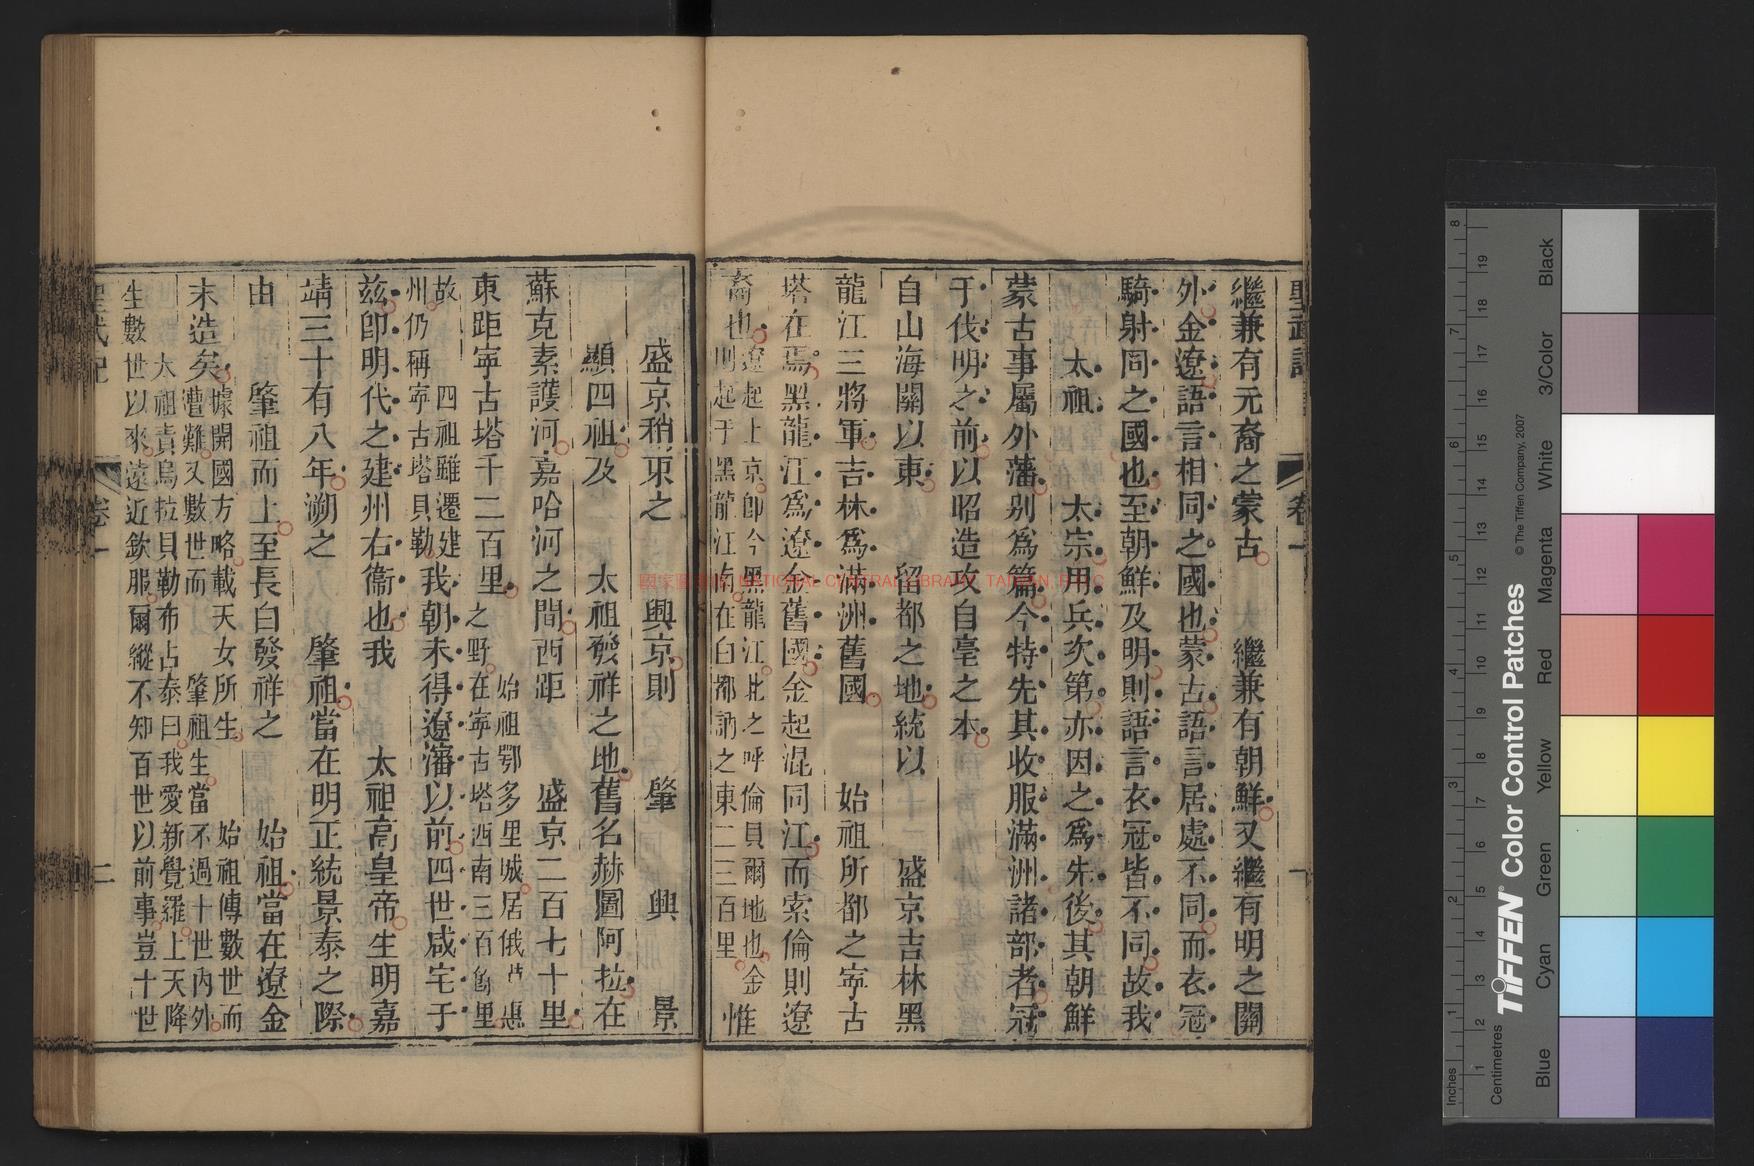 聖武記
卷一
一
繼兼有元裔之蒙古 繼兼有朝鮮又繼有明之關
外金遼語言相同之國也蒙古語言居處不同而衣冠
騎射同之國也至朝鮮及明則語言衣冠皆不同故我
太祖 太宗用兵次第亦因之為先後其朝鮮
蒙古事屬外藩別為篇今特先其收服滿洲諸部者冠
于伐明之前以昭造攻自亳之本
自山海關以東 留都之地統以 盛京吉林黑
龍江三將軍吉林為滿洲舊國 始祖所都之寧古
塔在焉黑龍江為遼金舊國金起混同江而索倫則遼
裔也遼起上京卽今黑龍江北之呼倫貝爾地也金
則起于黑龍江南在白都訥之東二三百里惟
盛京稍東之 興京則 肇 興 景
顯四祖及 太祖發祥之地舊名赫圖阿拉在
蘇克素護河嘉哈河之間西距 盛京二百七十里
東距寧古塔千二百里 始祖鄂多里城居俄
之野在寧古塔西南三百餘里
故 四祖雖遷建
州仍稱寧古塔貝勒我朝未得遼瀋以前四世咸宅于
茲卽明代之建州右衞也我 太祖高皇帝生明嘉
靖三十有八年溯之 肇祖當在明正統景泰之際
由 肇祖而上至長白發祥之 始祖當在遼金
末造矣據開國方略載天女所生 始祖傳數世而
遭難又數世而 肇祖生當不過十世內外
太祖責烏拉貝勒布占泰曰我愛新覺羅上天降
生數世以來遠近欽服爾縱不知百世以前事豈十世
聖武記
卷一
二
國家圖書館 NATIONAL CENTRAL LIBRARY, TAIWAN, R.O.C
TIFFEN® Color Control Patches
© The Tiffen Company, 2007
Centimetres
Inches
Blue
Cyan
Green
Yellow
Red
Magenta
White
3/Color
Black